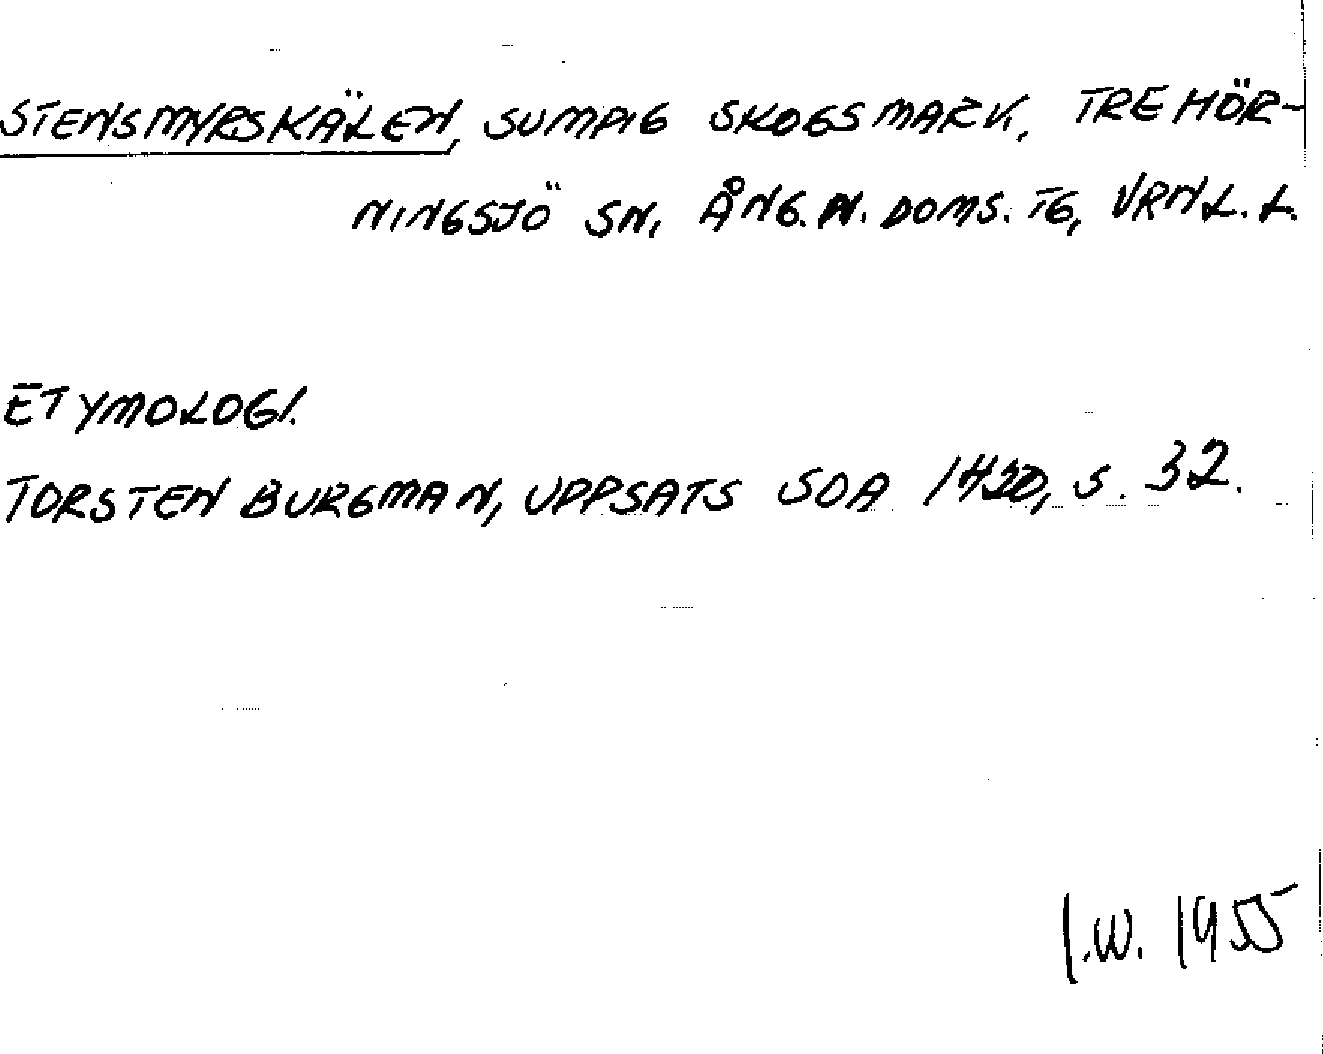 STENSMYRSKÄLEN, SUMPIG SKOGSMARK, TREHÖR-
NINGSJÖ SN, ÅNG. N. DOMS. TG, VRNL. L.
ETYMOLOGI.
TORSTEN BURGMAN, UPPSATS SOA 1430, S. 32.
I.W. 1955